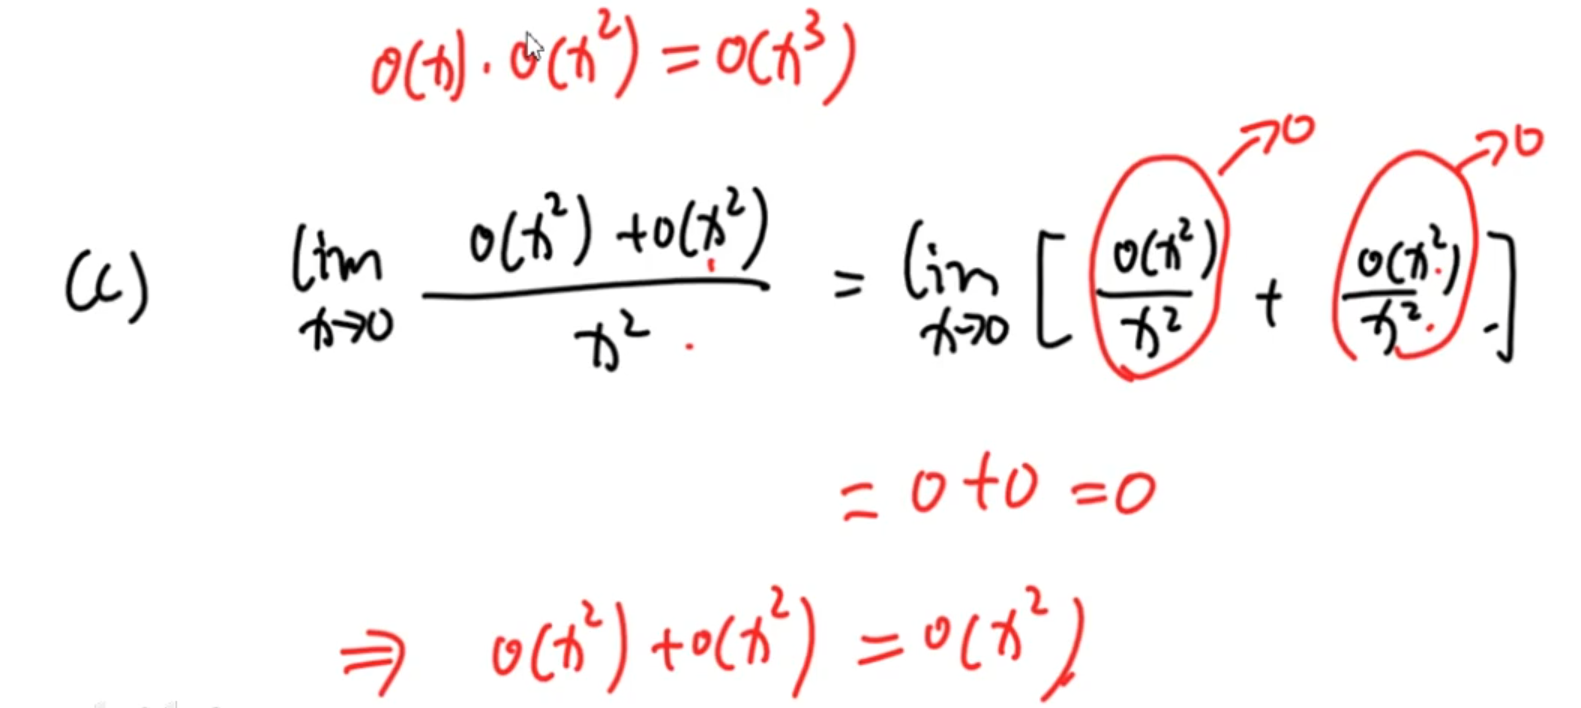 o(x)·o(x²) = o(x³)
(C) lim x→0 (o(x²)+o(x²))/x² = lim x→0 [o(x²)/x² →0 + o(x²)/x² →0]
= 0+0 = 0
⇒ o(x²)+o(x²) = o(x²)